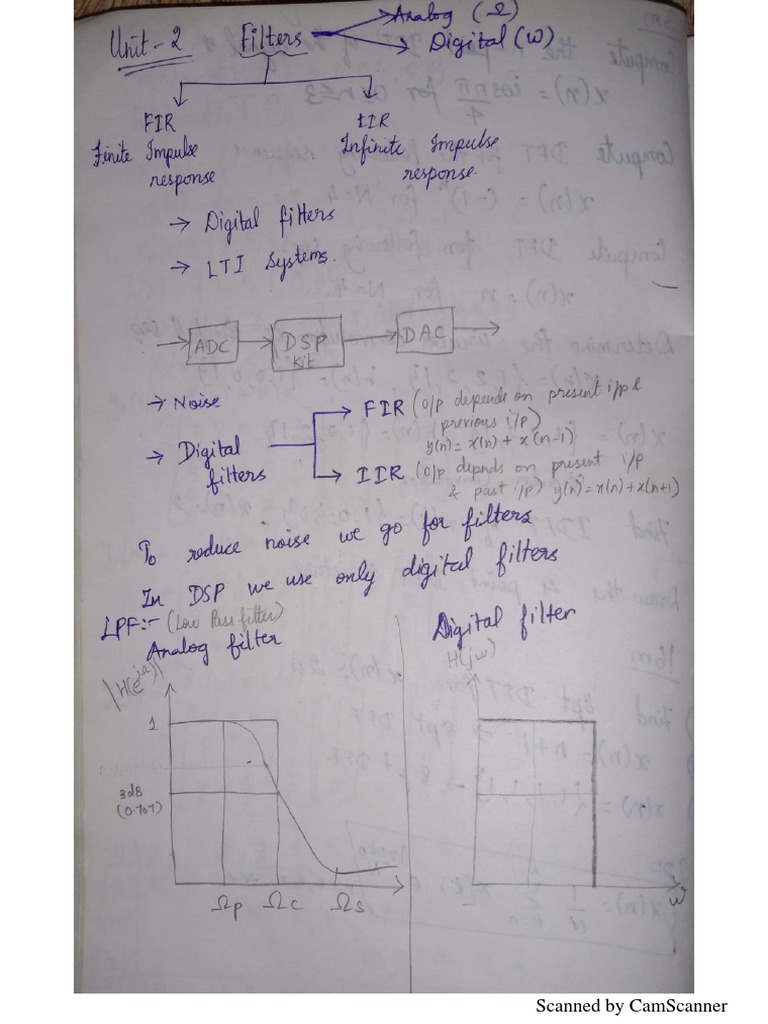 Unit-2 Filters Analog (Ω)
Digital (ω)
FIR IIR
Finite Impulse Infinite Impulse
response response.
→ Digital filters
→ LTI Systems.
ADC DSP Kit DAC
→ Noise
FIR (O/p depends on present i/p &
previous i/p)
y(n) = x(n) + x(n-1)
→ Digital filters
IIR (O/p depends on present i/p
& past i/p) y(n) = x(n) + x(n+1)
To reduce noise we go for filters
In DSP we use only digital filters
LPF:- (Low Pass filter)
Analog filter Digital filter
|H(e^jΩ)| H(jω)
1
3dB
(0.707)
Ωp Ωc Ωs ω
Scanned by CamScanner